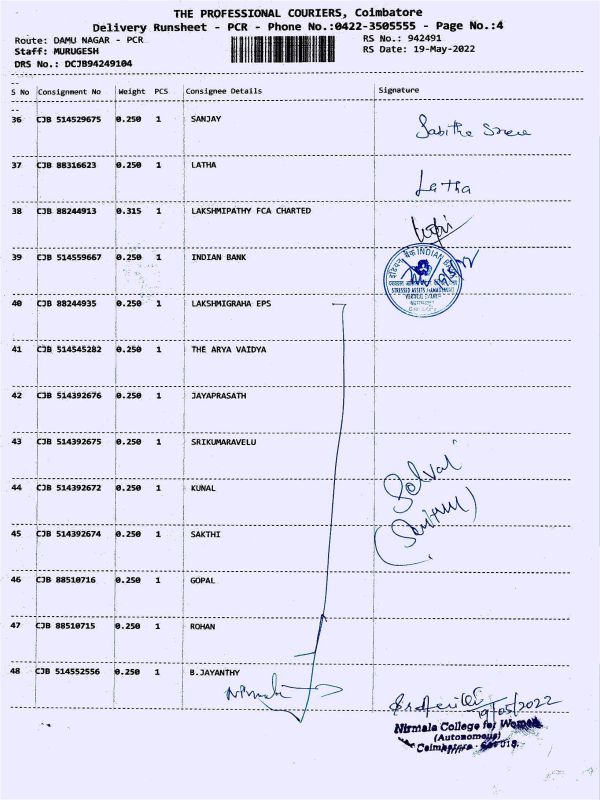 THE PROFESSIONAL COURIERS, Coimbatore
Delivery Runsheet - PCR - Phone No.:0422-3505555 - Page No.:4
Route: DAMU NAGAR - PCR
RS No.: 942491
Staff: MURUGESH
RS Date: 19-May-2022
DRS No.: DCJB94249104
S No Consignment No Weight PCS Consignee Details Signature
36 CJB 514529675 0.250 1 SANJAY
Sabitha
37 CJB 88316623 0.250 1 LATHA
Latha
38 CJB 88244913 0.315 1 LAKSHMIPATHY FCA CHARTED
39 CJB 514559667 0.250 1 INDIAN BANK
इंडियन बैंक INDIAN
STRESSED ASSETS MANAGEMENT
VERTICAL
40 CJB 88244935 0.250 1 LAKSHMIGRAHA EPS
41 CJB 514545282 0.250 1 THE ARYA VAIDYA
42 CJB 514392676 0.250 1 JAYAPRASATH
43 CJB 514392675 0.250 1 SRIKUMARAVELU
Selvai
44 CJB 514392672 0.250 1 KUNAL
45 CJB 514392674 0.250 1 SAKTHI
46 CJB 88510716 0.250 1 GOPAL
47 CJB 88510715 0.250 1 ROHAN
48 CJB 514552556 0.250 1 B.JAYANTHY
Nirmala
19/05/2022
Nirmala College for Women
(Autonomous)
Coimbatore - 641 018.